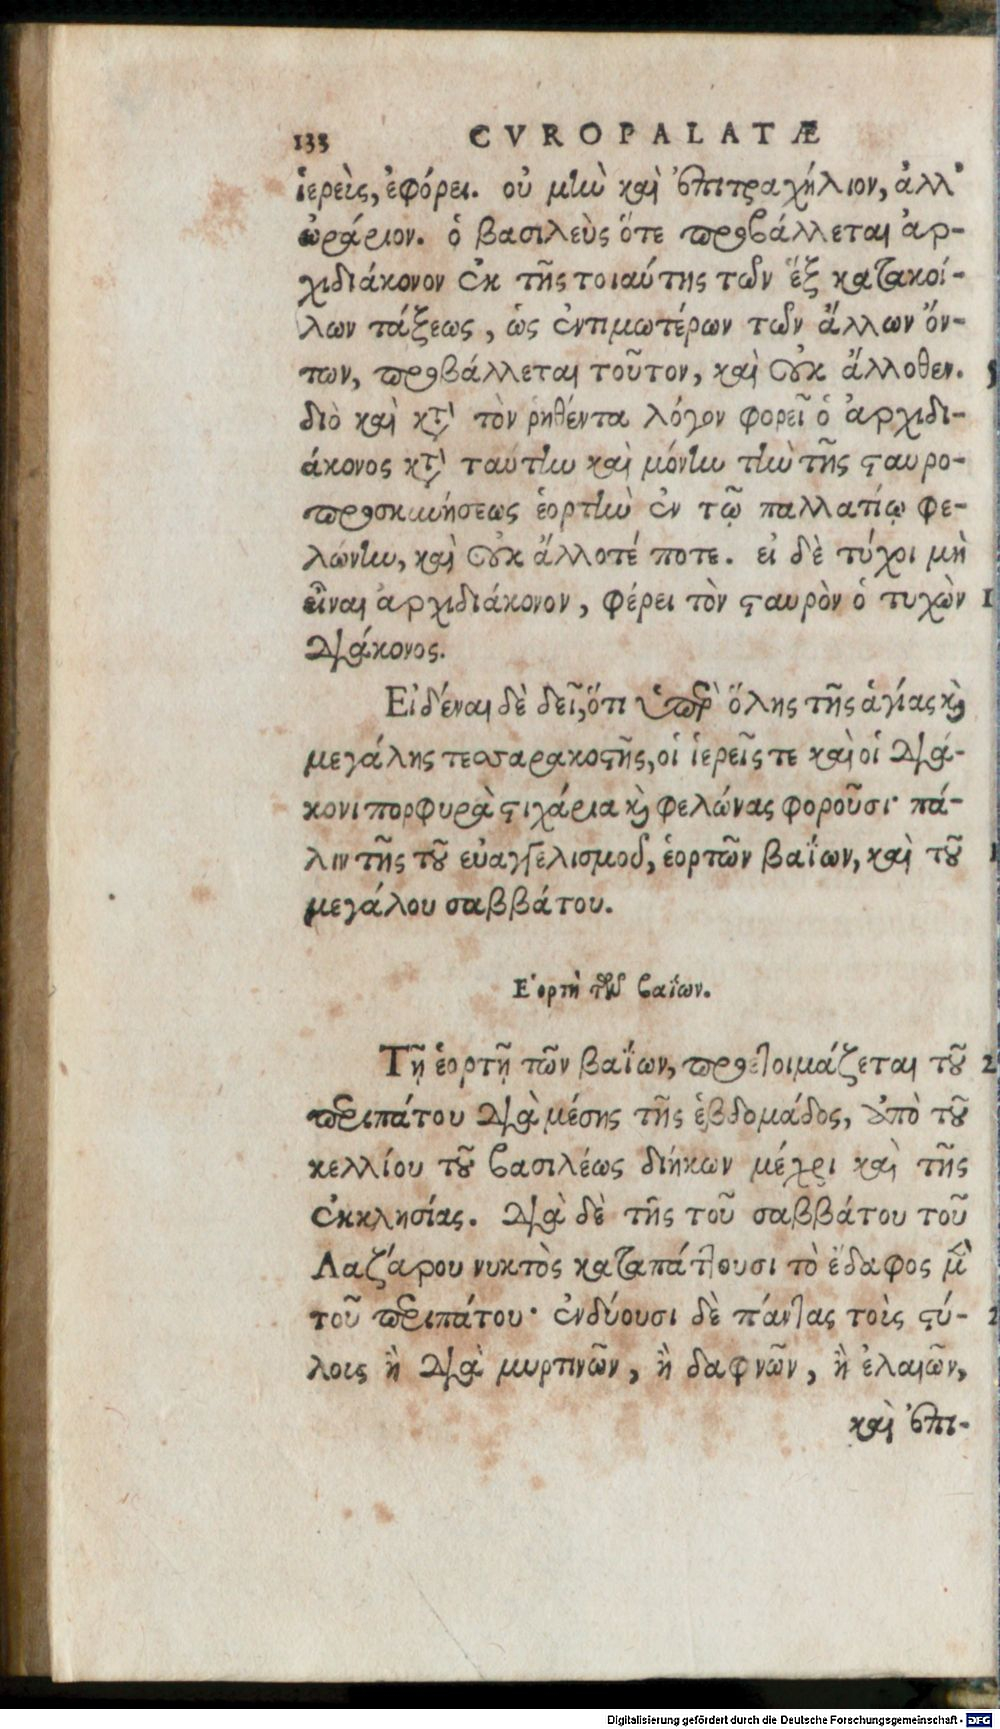 133 CVROPALATÆ
ἱερεὶς, ἐφόρει. οὐ μὴν καὶ ἐπιτραχήλιον, ἀλλ'
ὠράριον. ὁ βασιλεὺς ὅτε προβάλλεται ἀρ-
χιδιάκονον ἐκ τῆς τοιαύτης τῶν ἕξ κατακοί-
λων τάξεως, ὡς ἐντιμωτέρων τῶν ἄλλων ὄν-
των, προβάλλεται τοῦτον, καὶ οὐκ ἄλλοθεν. 5
διὸ καὶ κτ̀ τὸν ῥηθέντα λόγον φορεῖ ὁ ἀρχιδι-
άκονος κτ̀ ταύτην καὶ μόνην τὴν τῆς σταυρο-
προσκυνήσεως ἑορτὴν ἐν τῷ παλλατίῳ φε-
λώνην, καὶ οὐκ ἄλλοτέ ποτε. εἰ δὲ τύχοι μὴ
εἶναι ἀρχιδιάκονον, φέρει τὸν σταυρὸν ὁ τυχὼν 1
διάκονος.
Εἰδέναι δὲ δεῖ, ὅτι ὑπὲρ ὅλης τῆς ἁγίας καὶ
μεγάλης τεσσαρακοστῆς, οἱ ἱερεῖς τε καὶ οἱ διά-
κονι πορφυρὰ στιχάρια καὶ φελώνας φοροῦσι· πά-
λιν τῆς τοῦ εὐαγγελισμοῦ, ἑορτῶν βαΐων, καὶ τοῦ 1
μεγάλου σαββάτου.
Ἑορτὴ τῶν βαΐων.
Τῇ ἑορτῇ τῶν βαΐων, προετοιμάζεται τοῦ 2
περιπάτου διὰ μέσης τῆς ἑβδομάδος, ἀπὸ τοῦ
κελλίου τοῦ βασιλέως διήκων μέχρι καὶ τῆς
ἐκκλησίας. διὰ δὲ τῆς τοῦ σαββάτου τοῦ
Λαζάρου νυκτὸς καταπάττουσι τὸ ἔδαφος μ̂
τοῦ περιπάτου· ἐνδύουσι δὲ πάντας τοὶς στύ- 2
λοις ἢ διὰ μυρτινῶν, ἢ δαφνῶν, ἢ ἐλαιῶν,
καὶ ἐπι-
Digitalisierung gefördert durch die Deutsche Forschungsgemeinschaft - DFG